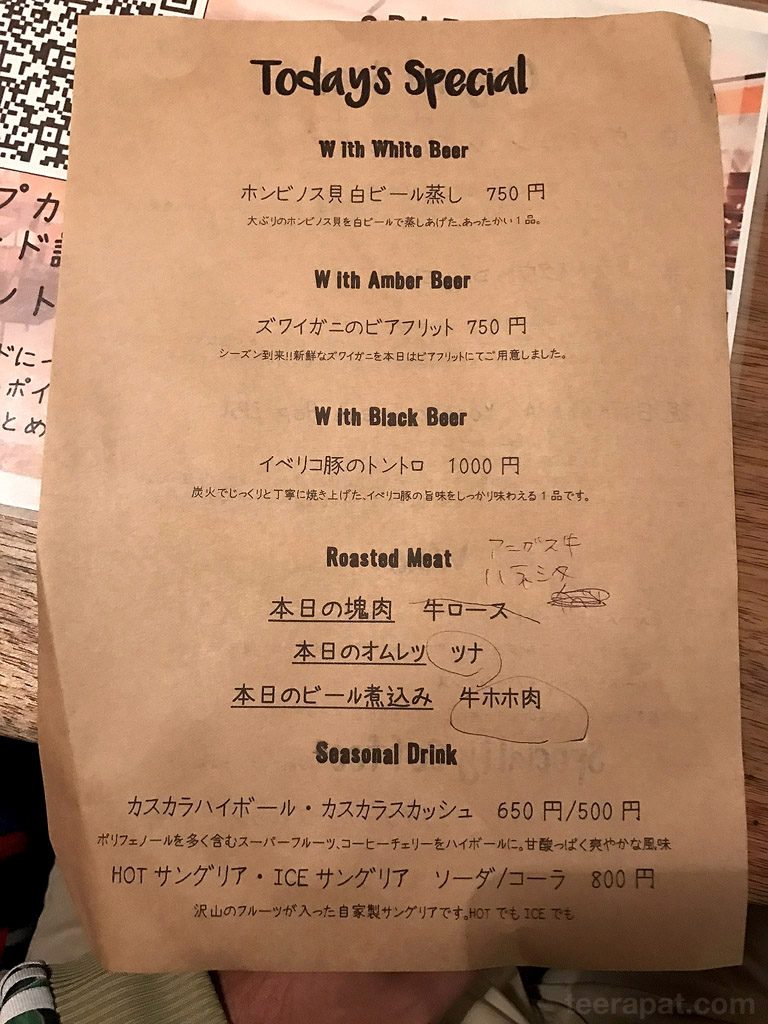 Today's Special
With White Beer
ホンビノス貝白ビール蒸し 750円
大ぶりのホンビノス貝を白ビールで蒸しあげた、あったかい1品。
With Amber Beer
ズワイガニのビアフリット 750円
シーズン到来!!新鮮なズワイガニを本日はビアフリットにてご用意しました。
With Black Beer
イベリコ豚のトントロ 1000円
炭火でじっくりと丁寧に焼き上げた、イベリコ豚の旨味をしっかり味わえる1品です。
アンガス牛
Roasted Meat
ハネシタ
本日の塊肉 牛ロース
本日のオムレツ ツナ
本日のビール煮込み 牛ホホ肉
Seasonal Drink
カスカラハイボール・カスカラスカッシュ 650円/500円
ポリフェノールを多く含むスーパーフルーツ、コーヒーチェリーをハイボールに。甘酸っぱく爽やかな風味
HOTサングリア・ICEサングリア ソーダ/コーラ 800円
沢山のフルーツが入った自家製サングリアです。HOTでもICEでも
teerapat.com